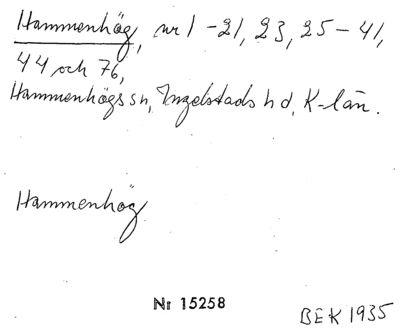 Hammenhög, nr 1-21, 23, 25-41,
44 och 76,
Hammenhögs sn, Ingelstads hd, K-län.
Hammenhög
Nr 15258
BEK 1935